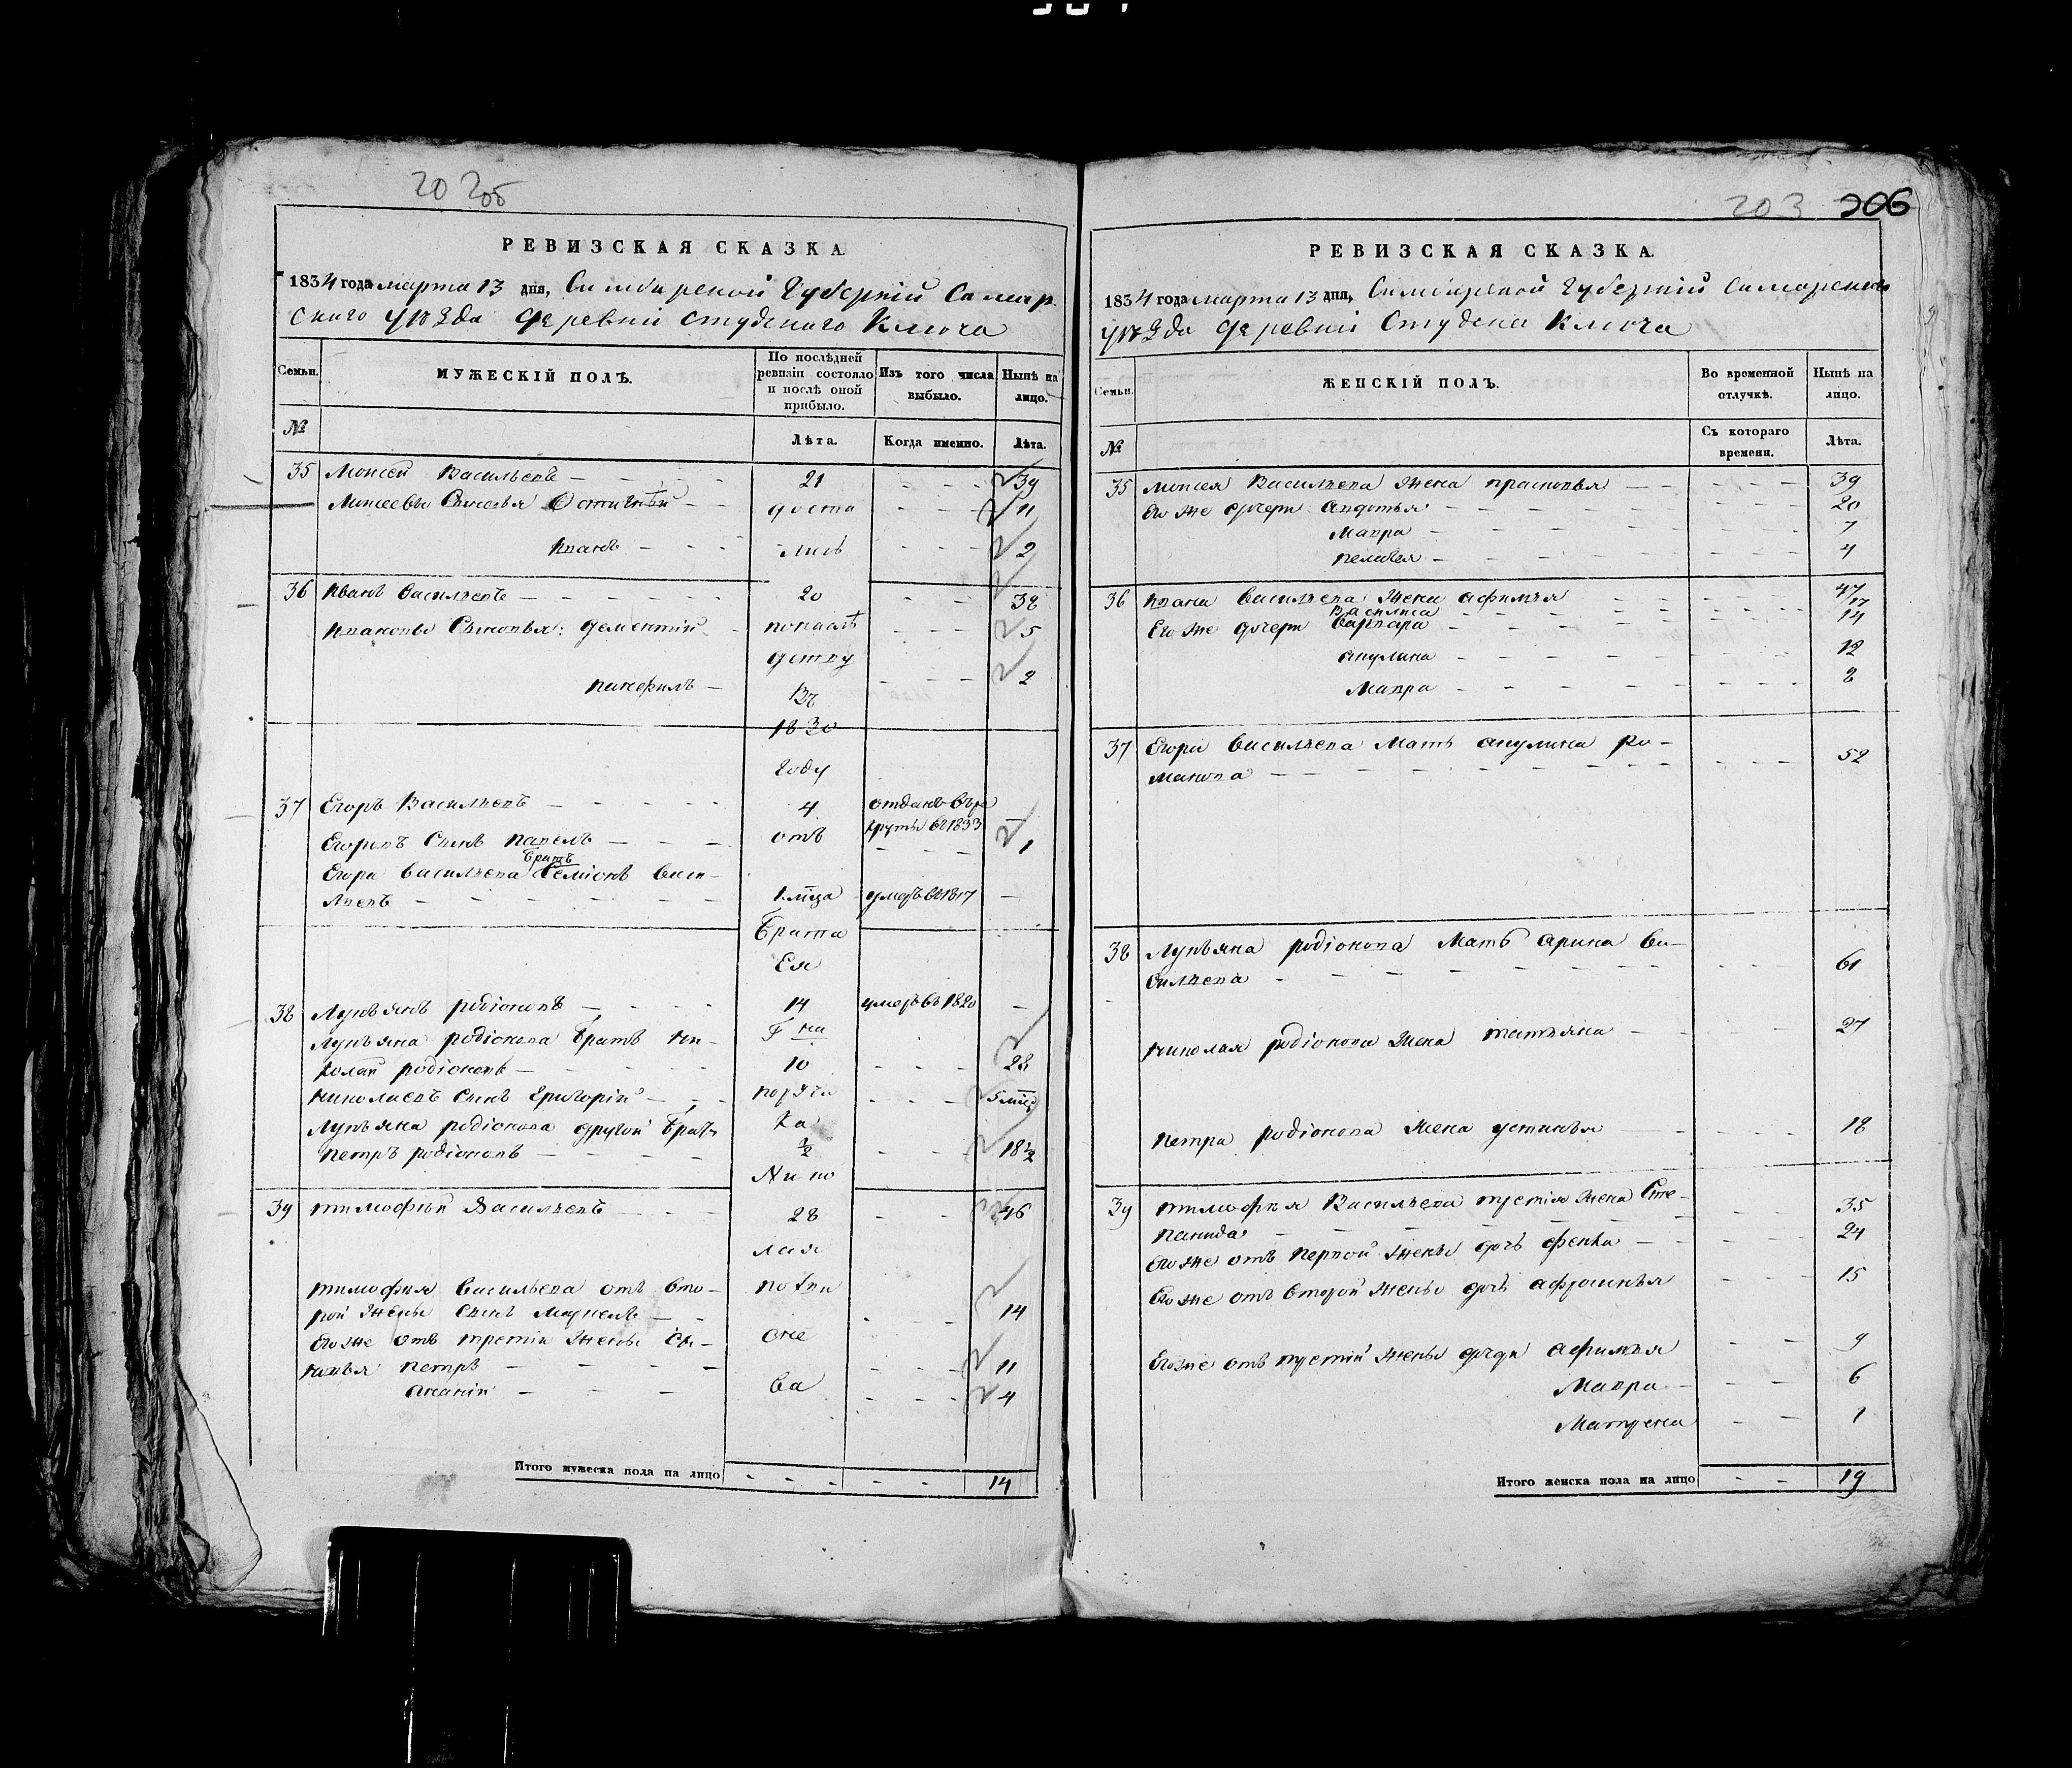 20 205
РЕВИЗСКАЯ СКАЗКА
1834 года марта 13 дня, Симбирской Губерніи Самар
ского уѣзда деревни студенаго Ключа
Семьи.
МУЖЕСКІЙ ПОЛЪ.
По послѣдней
ревизіи состояло
и послѣ оной
прибыло.
Изъ того числа
выбыло.
Нынѣ на
лицо.
№
Лѣта.
Когда именно.
Лѣта.
35 Моисей Васильевъ 21 39
Моисеевы Сыновья доста 11
Иванъ лись 2
36 Иванъ Васильевъ 20 38
Ивановы Сыновья: Дементій понаслѣ 5
дству
Панфилъ 2
Въ
1830
Году
37 Егоръ Васильевъ 4 отданъ въ ре
круты въ 1833
Егоровъ Сынъ Павелъ отъ 1
братъ
Егора Васильева Семіонъ Васи-
льевъ 1 мца умеръ въ 1817
Брата
Ея
38 Лукьянъ родіоновъ 14 умеръ въ 1820
Лукьяна родіонова братъ Ни- Г на
колай родіоновъ 10 28
Николаевъ Сынъ Григорій поручи 5 мцъ
Лукьяна родіонова другой братъ ка
Петръ родіоновъ ½ 18½
Нико
39 тимофѣй Васильевъ 28 46
лая
тимофея Васильева отъ вто-
рой жены сынъ 14
Его же отъ третіи жены сы-
новья Петръ 11
Ананій ва 4
Итого мужеска пола на лицо 14
203 206
РЕВИЗСКАЯ СКАЗКА
1834 года марта 13 дня, Симбирской Губерніи Самарскаго
уѣзда деревни Студена Ключа
Семьи.
ЖЕНСКІЙ ПОЛЪ.
Во временной
отлучкѣ.
Нынѣ на
лицо.
№
Съ котораго
времени.
Лѣта.
35 Моисея Васильева жена прасковья 39
Его же дочери Авдотья 20
Мавра 7
Пелагея 4
36 Ивана Васильева жена афимья 47
Василиса 17
Его же дочери Варвара 14
акулина 12
Мавра 8
37 Егора Васильева Мать акулина Ро-
манова 52
38 Лукьяна родіонова Мать арина Ва-
сильева 61
Николая родіонова жена татьяна 27
Петра родіонова жена устинья 18
39 тимофея Васильева третія жена Сте-
панида 35
Его же отъ первой жены дочь фекла 24
Его же отъ второй жены дочь афросинья 15
Его же отъ третій жены дочери афимья 9
Мавра 6
Матрена 1
Итого женска пола на лицо 19